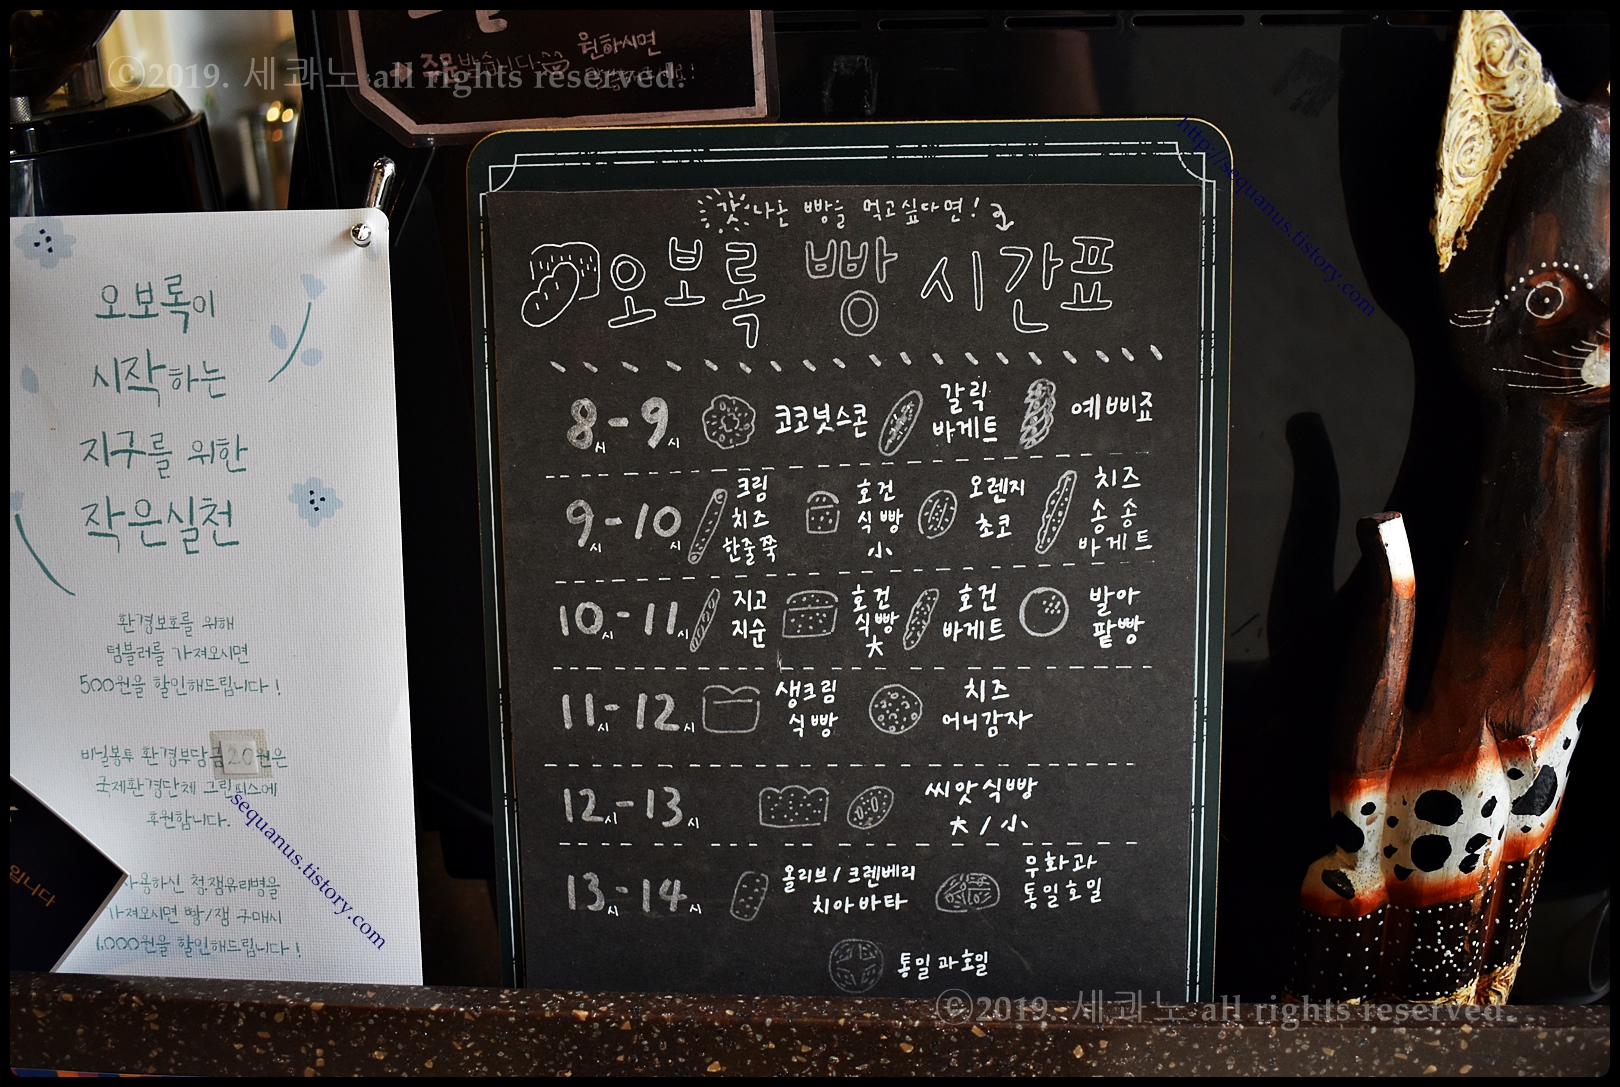 ©2019. 세콰노 all rights reserved.
주문받습니다
원하시면
http://sequanus.tistory.com
오보록이
시작하는
지구를 위한
작은실천
환경보호를 위해
텀블러를 가져오시면
500원을 할인해드립니다!
비닐봉투 환경부담금 20원은
국제환경단체 그린피스에
후원합니다.
사용하신 청,잼유리병을
가져오시면 빵/잼 구매시
1,000원을 할인해드립니다!
sequanus.tistory.com
입니다
갓 나온 빵을 먹고싶다면!
오보록 빵 시간표
8시-9시 코코넛스콘 갈릭바게트 예삐죠
9시-10시 크림치즈한줄쭉 호건식빵小 오렌지초코 치즈송송바게트
10시-11시 지고지순 호건식빵大 호건바게트 발아팥빵
11시-12시 생크림식빵 치즈어니감자
12시-13시 씨앗식빵 大/小
13시-14시 올리브/크렌베리 치아바타 무화과통밀호밀
통밀과호밀
©2019. 세콰노 all rights reserved.